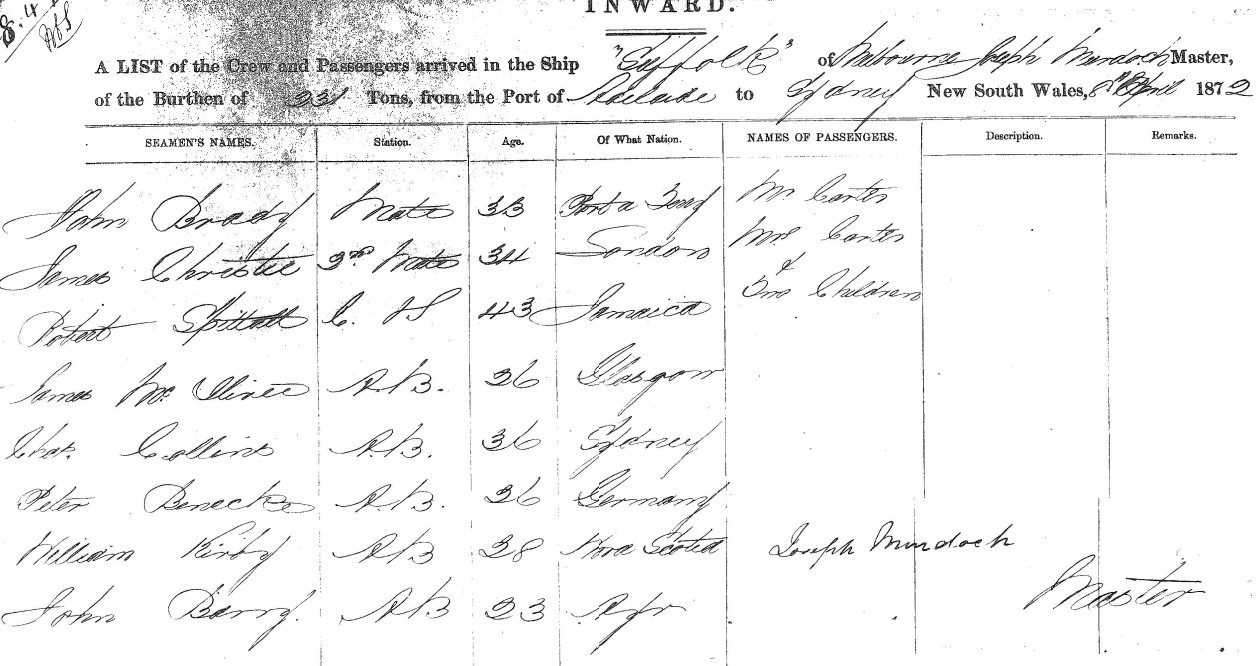 INWARD.
A LIST of the Crew and Passengers arrived in the Ship "Suffolk" of Melbourne Joseph Murdoch Master,
of the Burthen of 331 Tons, from the Port of Adelaide to Sydney New South Wales, 8th April 1872
SEAMEN'S NAMES. Station. Age. Of What Nation. NAMES OF PASSENGERS. Description. Remarks.
John Brady Mate 33 Mr Carter
James Christie 2nd Mate 34 London Mrs Carter
&
Robert Spittall C. & S 43 Jamaica Two Children
James Mc 26 Glasgow A.B.
Chas. Collins A.B. 36 Sydney
Peter Benecke A.B. 26 Germany
William Kirby AB 28 Nova Scotia Joseph Murdoch
John Barry. AB 23 Ayr Master